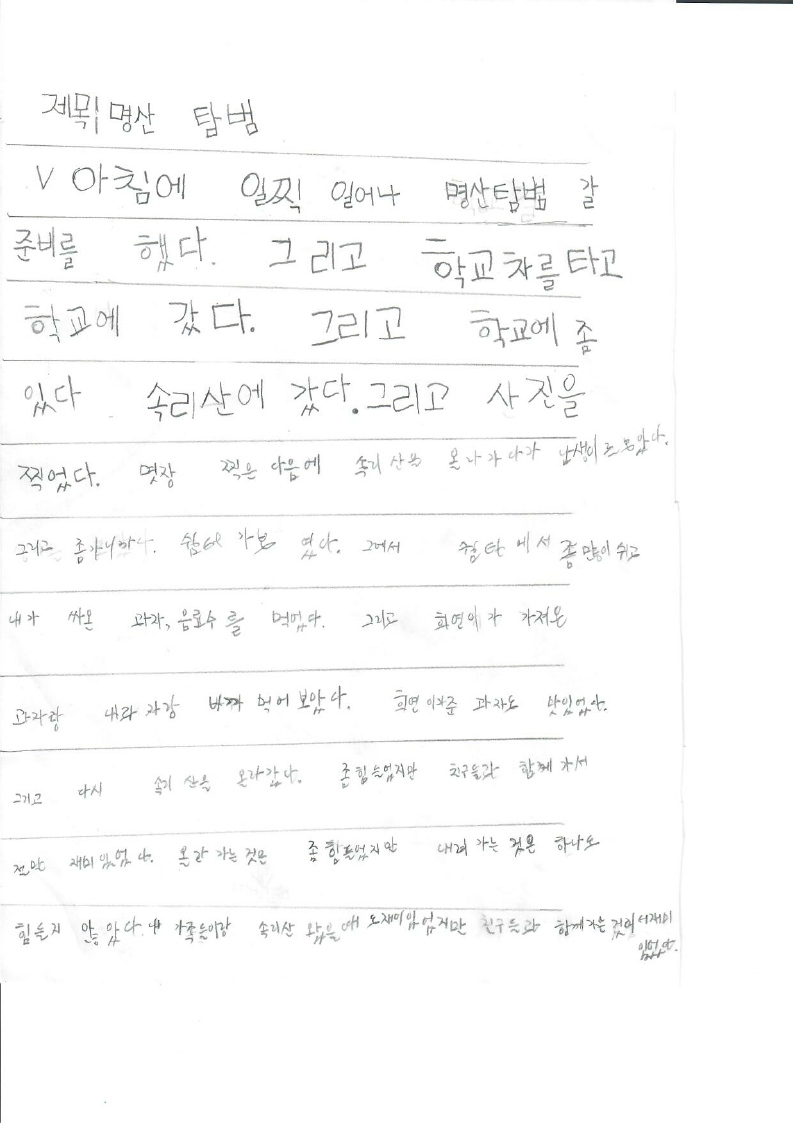 제목| 명산 탐범
V 아침에 일찍 일어나 명산탐범 갈
준비를 했다. 그리고 학교차를 타고
학교에 갔다. 그리고 학교에 좀
있다 속리산에 갔다. 그리고 사진을
찍었다. 몇장 찍은 다음에 속리산을 올라가다가
그리고 좀 쉼터 그래서 쉼터에서 좀 많이 쉬고
내가 싸온 과자, 음료수를 먹었다. 그리고 희연이가 가져온
과자랑 내과자랑 바꺼 먹어 보았다. 희연이가준 과자도 맛있었다.
그리고 다시 속리산을 올라갔다. 좀힘들었지만 친구들과 함께 가서
재미있었다. 올라가는것은 좀 힘들었지만 내려가는 것은 하나도
힘들지 않았다. 내 가족들이랑 속리산 왔을때도재미있었지만 친구들과 함께가는 것이 재미
있었다.